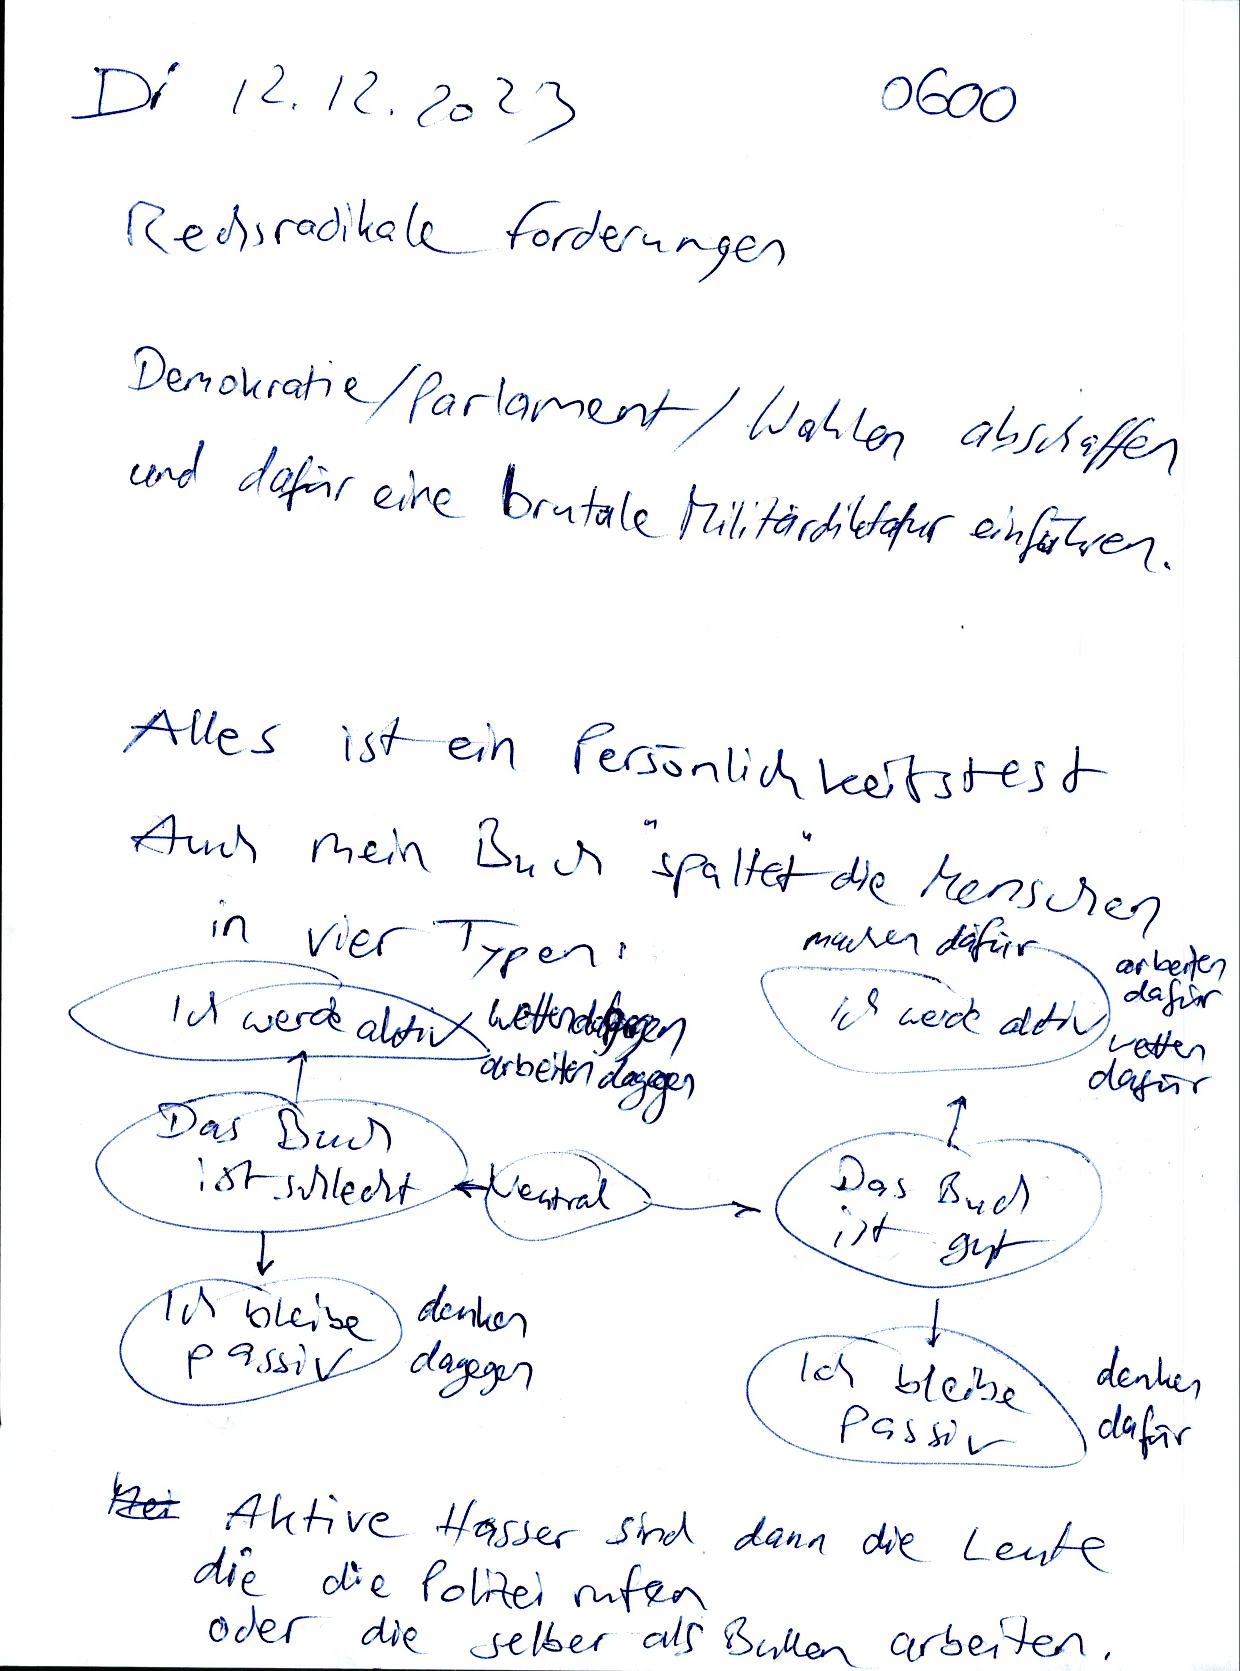 Di 12.12.2023 0600
Rechsradikale Forderungen
Demokratie/Parlament/Wahlen abschaffen
und dafür eine brutale Militärdiktatur einführen.
Alles ist ein Persönlichkeitstest
Auch mein Buch "spaltet" die Menschen
in vier Typen:
machen dafür
Ich werde aktiv
wetten dagegen
arbeiten dagegen
Ich werde aktiv
arbeiten
dafür
wetten
dafür
Das Buch
ist schlecht
Neutral
Das Buch
ist gut
Ich bleibe
passiv
denken
dagegen
Ich bleibe
passiv
denken
dafür
Aktive Hasser sind dann die Leute
die die Polizei rufen
oder die selber als Bullen arbeiten.